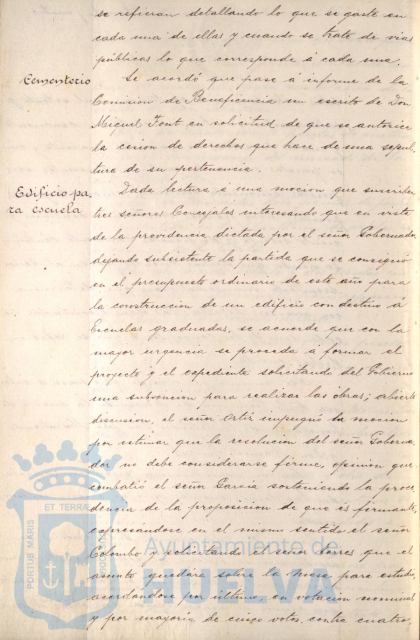 se refieran detallando lo que se gaste en
cada una de ellas y cuando se trate de vias
públicas lo que corresponde á cada una.
Cementerio
Se acordó que pase á informe de la
Comision de Beneficencia un escrito de Don
Miguel Font en solicitud de que se autorice
la cesion de derechos que hace de una sepul-
tura de su pertenencia.
Edificio pa-
ra escuela
Dada lectura á una mocion que suscriben
tres señores Concejales interesando que en vista
de la providencia dictada por el señor Gobernador
dejando subsistente la partida que se consignó
en el presupuesto ordinario de este año para
la construccion de un edificio con destino á
Escuelas graduadas, se acuerde que con la
mayor urgencia se proceda á formar el
proyecto y el expediente solicitando del Gobierno
una subvencion para realizar las obras; abierta
discusion, el señor impugnó la mocion
por estimar que la resolucion del señor Goberna-
dor no debe considerarse firme, opinion que
combatió el señor García sosteniendo la proce-
dencia de la proposicion de que es firmante,
expresandose en el mismo sentido el señor
Colombo y solicitando el señor que el
asunto quedara sobre la mesa para estudio
acordandose por último, en votacion nominal
y por mayoria de cinco votos, contra cuatro,
PORTUS MARIS
ET TERRAE
CUSTODIA
Ayuntamiento de
HUELVA